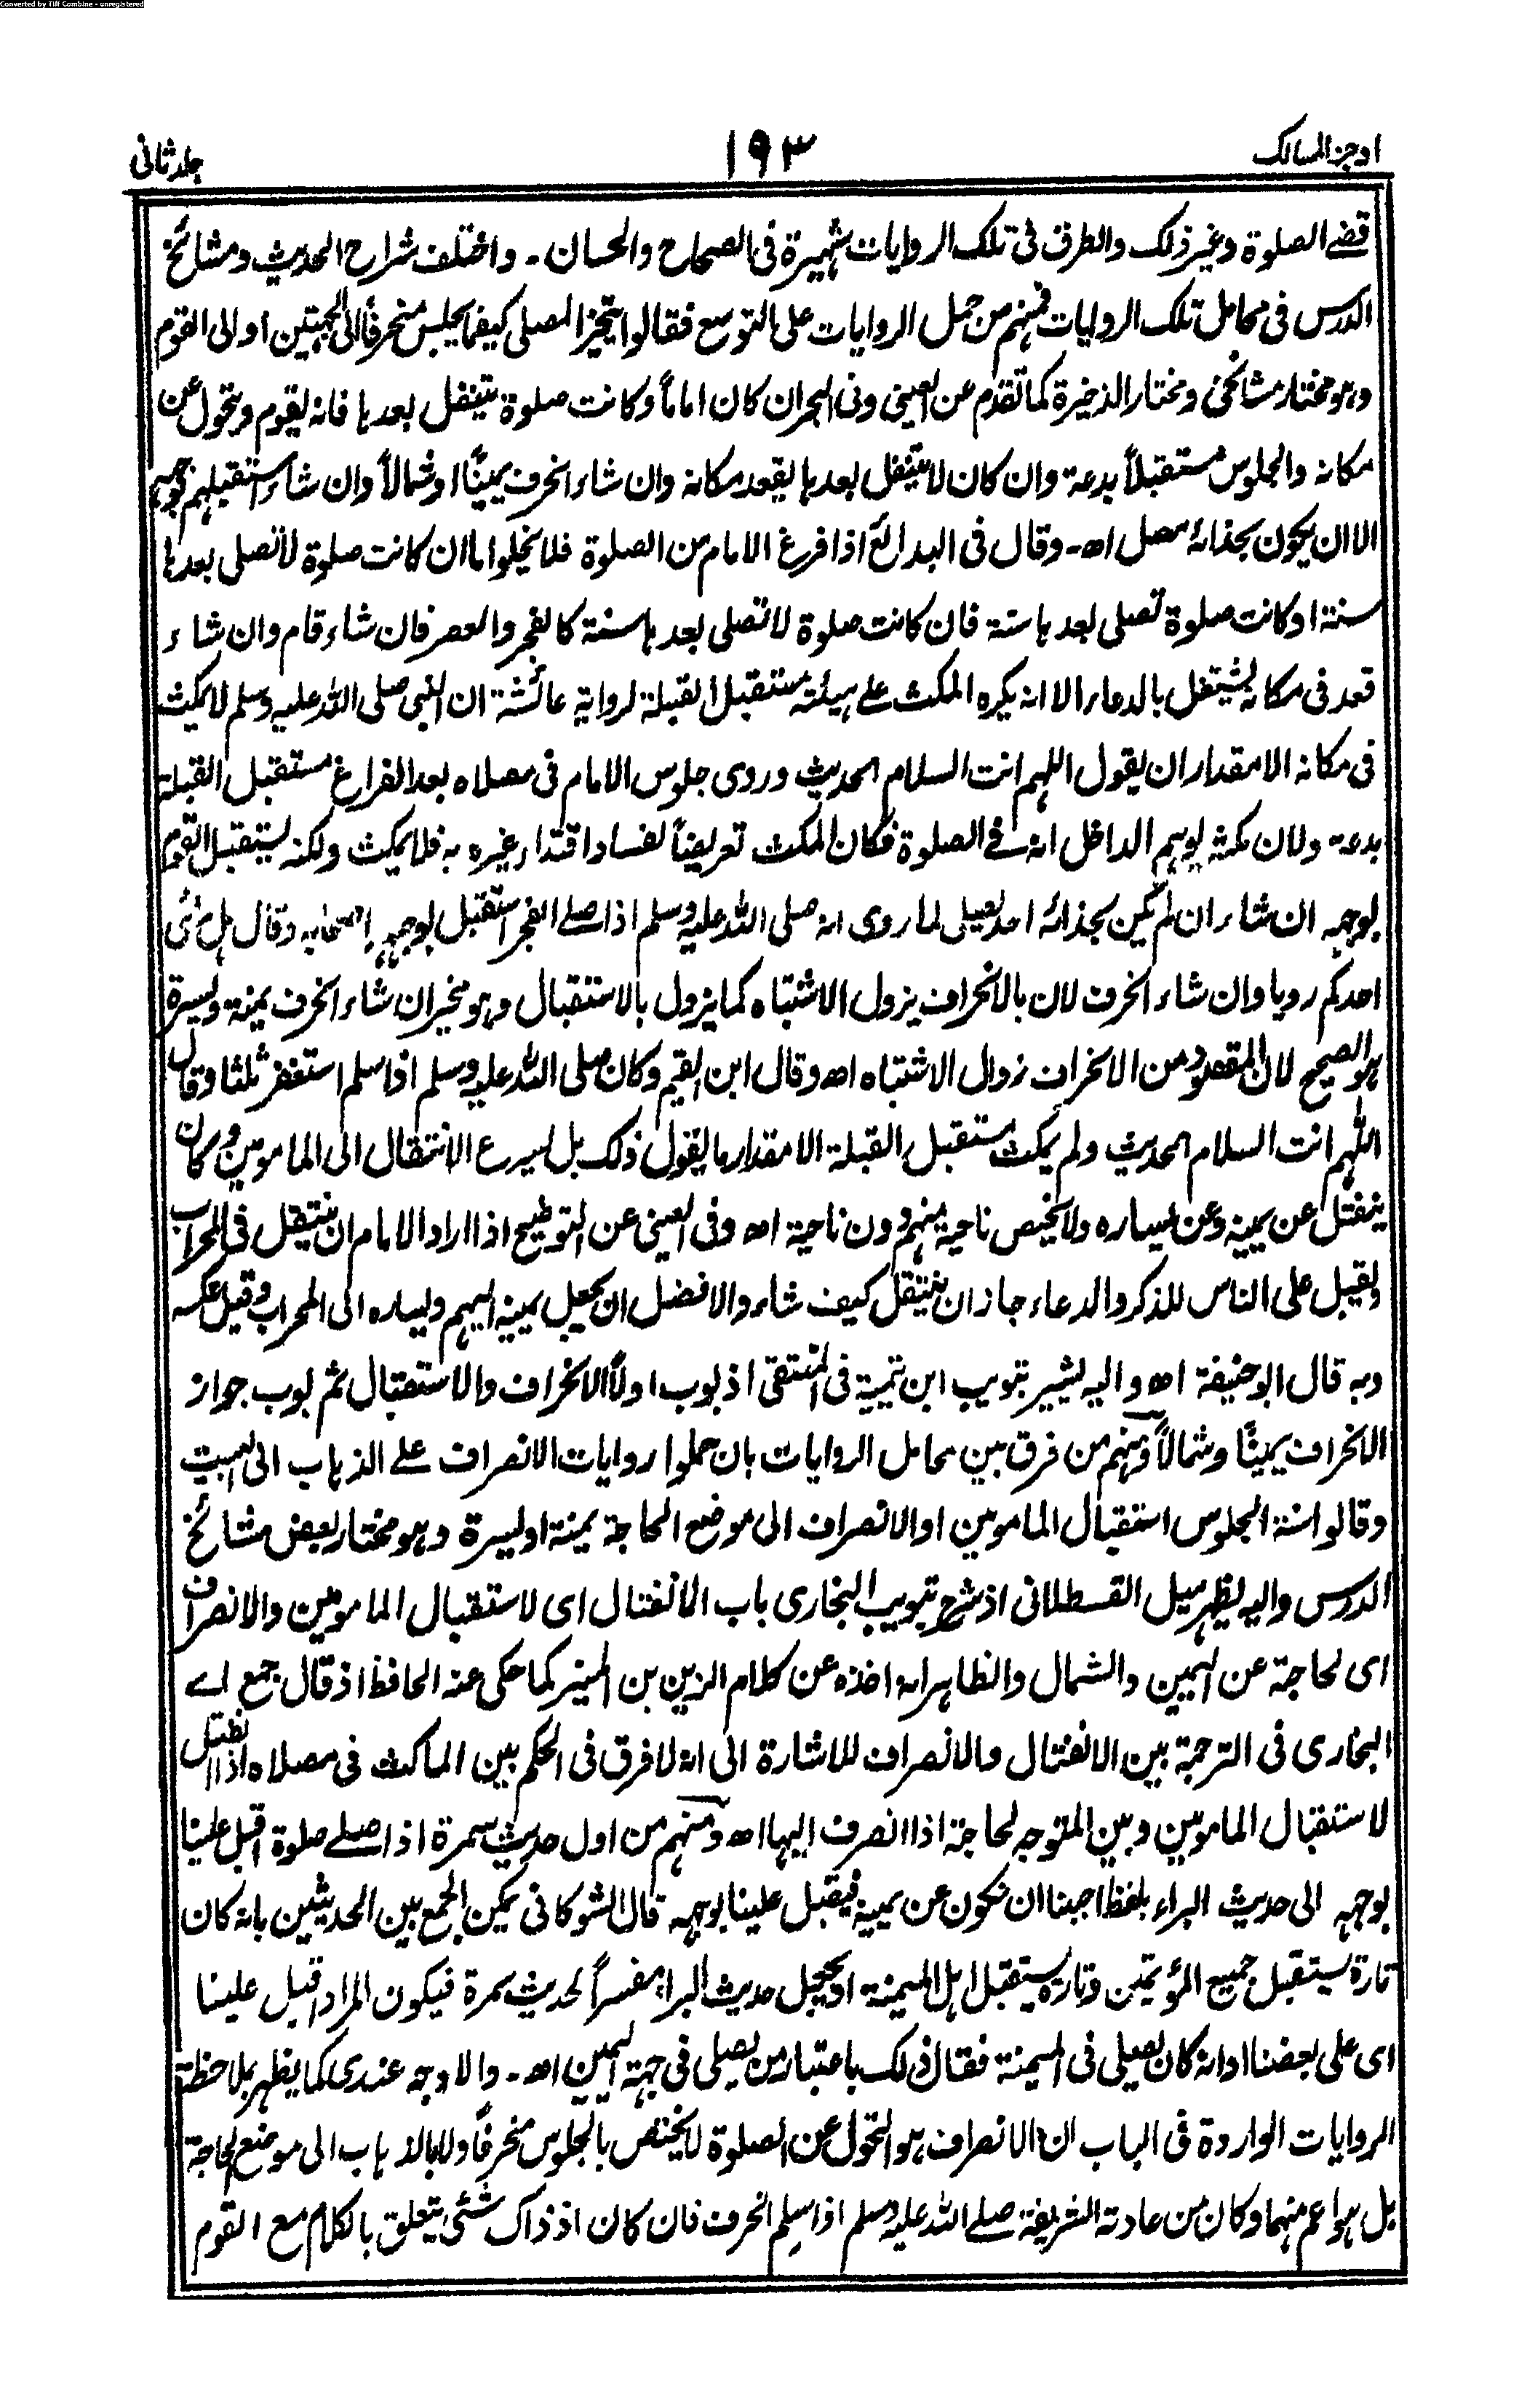 Converted by Tiff Combine - unregistered
اوجز المسالک
۱۹۳
جلد ثانی
قضے الصلوة وغیر ذلک والطرق فی تلک الروایات شهیرة فی الصحاح والحسان۔ واختلف شراح الحدیث ومشائخ
الدرس فی محامل تلک الروایات فمنهم من حمل الروایات علی التوسع فقالوا یتخیر المصلی کیفما یجلس منحرفاً الی الجهتین او الی القوم
وهو مختار مشائخی ومختار الذخیرة کما تقدم عن العینی وفی البحر ان کان اماماً وکانت صلوة یتنفل بعدها فانه یقوم ویتحول عن
مکانه والجلوس مستقبلاً بدعة وان کان لا یتنفل بعدها یقعد مکانه وان شاء انحرف یمیناً او شمالاً وان شاء استقبلهم بوجهه
الا ان یکون بحذائه مصل اه۔ وقال فی البدائع اذا فرغ الامام من الصلوة فلا یخلوا اما ان کانت صلوة لا تصلی بعدها
سنة او کانت صلوة تصلی بعدها سنة فان کانت صلوة لا تصلی بعدها سنة کالفجر والعصر فان شاء قام وان شاء
قعد فی مکانه یشتغل بالدعاء الا انه یکره المکث علے هیئته مستقبل القبلة لروایة عائشة ان النبی صلی الله علیه وسلم لا یمکث
فی مکانه الا مقدار ان یقول اللهم انت السلام الحدیث وروی جلوس الامام فی مصلاه بعد الفراغ مستقبل القبلة
بدعة ولان مکثه یوهم الداخل انه فے الصلوة فکان المکث تعریضاً لفساد اقتداء غیره به فلا یمکث ولکنه یستقبل القوم
بوجهه ان شاء ان لم یکن بحذائه احد یصلی لما روی انه صلی الله علیه وسلم اذا صلے الفجر استقبل بوجهه اصحابه وقال هل رئی
احدکم رویا وان شاء انحرف لان بالانحراف یزول الاشتباه کما یزول بالاستقبال وهو مخیر ان شاء انحرف یمنة ویسرة
هو الصحیح لان المقصود من الانحراف زوال الاشتباه اه وقال ابن القیم وکان صلی الله علیه وسلم اذا سلم استغفر ثلثا وقال
اللهم انت السلام الحدیث ولم یمکث مستقبل القبلة الا مقدار ما یقول ذلک بل یسرع الانتقال الی المامومین وکان
ینفتل عن یمینه وعن یساره ولا یخص ناحیة منهم دون ناحیة اه وفی العینی عن التوضیح اذا اراد الامام ان ینتقل فی المحراب
ویقبل علی الناس للذکر والدعاء جاز ان ینتقل کیف شاء والافضل ان یجعل یمینه الیهم ویساره الی المحراب وقیل عکسه
وبه قال ابو حنیفة اه والیه یشیر تبویب ابن تیمیة فی المنتقی اذ بوب اولاً الانحراف والاستقبال ثم بوب جواز
الانحراف یمیناً وشمالاً ومنهم من فرق بین محامل الروایات بان حملوا روایات الانصراف علے الذهاب الی البیت
وقالوا سنة الجلوس استقبال المامومین او الانصراف الی موضع الحاجة یمنة او یسرة وهو مختار بعض مشائخ
الدرس والیه یظهر میل القسطلانی اذ شرح تبویب البخاری باب الانفتال ای لاستقبال المامومین والانصراف
ای لحاجة عن الیمین والشمال والظاهر انه اخذه عن کلام الزین بن المنیر کما حکی عنه الحافظ اذ قال جمع اے
البخاری فی الترجمة بین الانفتال والانصراف للاشارة الی انه لا فرق فی الحکم بین الماکث فی مصلاه اذا انفتل
لاستقبال المامومین وبین المتوجه لحاجة اذا انصرف الیها اه ومنهم من اول حدیث سمرة اذا صلے صلوة اقبل علینا
بوجهه الی حدیث البراء بلفظ احببنا ان نکون عن یمینه فیقبل علینا بوجهه قال الشوکانی یمکن الجمع بین الحدیثین بانه کان
تارة یستقبل جمیع المؤتمین وتارة یستقبل اهل المیمنة او یجعل حدیث البراء مفسراً لحدیث سمرة فیکون المراد اقبل علینا
ای علی بعضنا او انه کان یصلی فی المیمنة فقال ذلک باعتبار من یصلی فی جهة الیمین اه۔ والاوجه عندی کما یظهر بملاحظة
الروایات الواردة فی الباب ان الانصراف هو التحول عن الصلوة لا یختص بالجلوس منحرفاً ولا بالذهاب الی موضع الحاجة
بل هو اعم منهما وکان من عادته الشریفة صلے الله علیه وسلم اذا سلم انحرف فان کان اذ ذاک شئی یتعلق بالکلام مع القوم